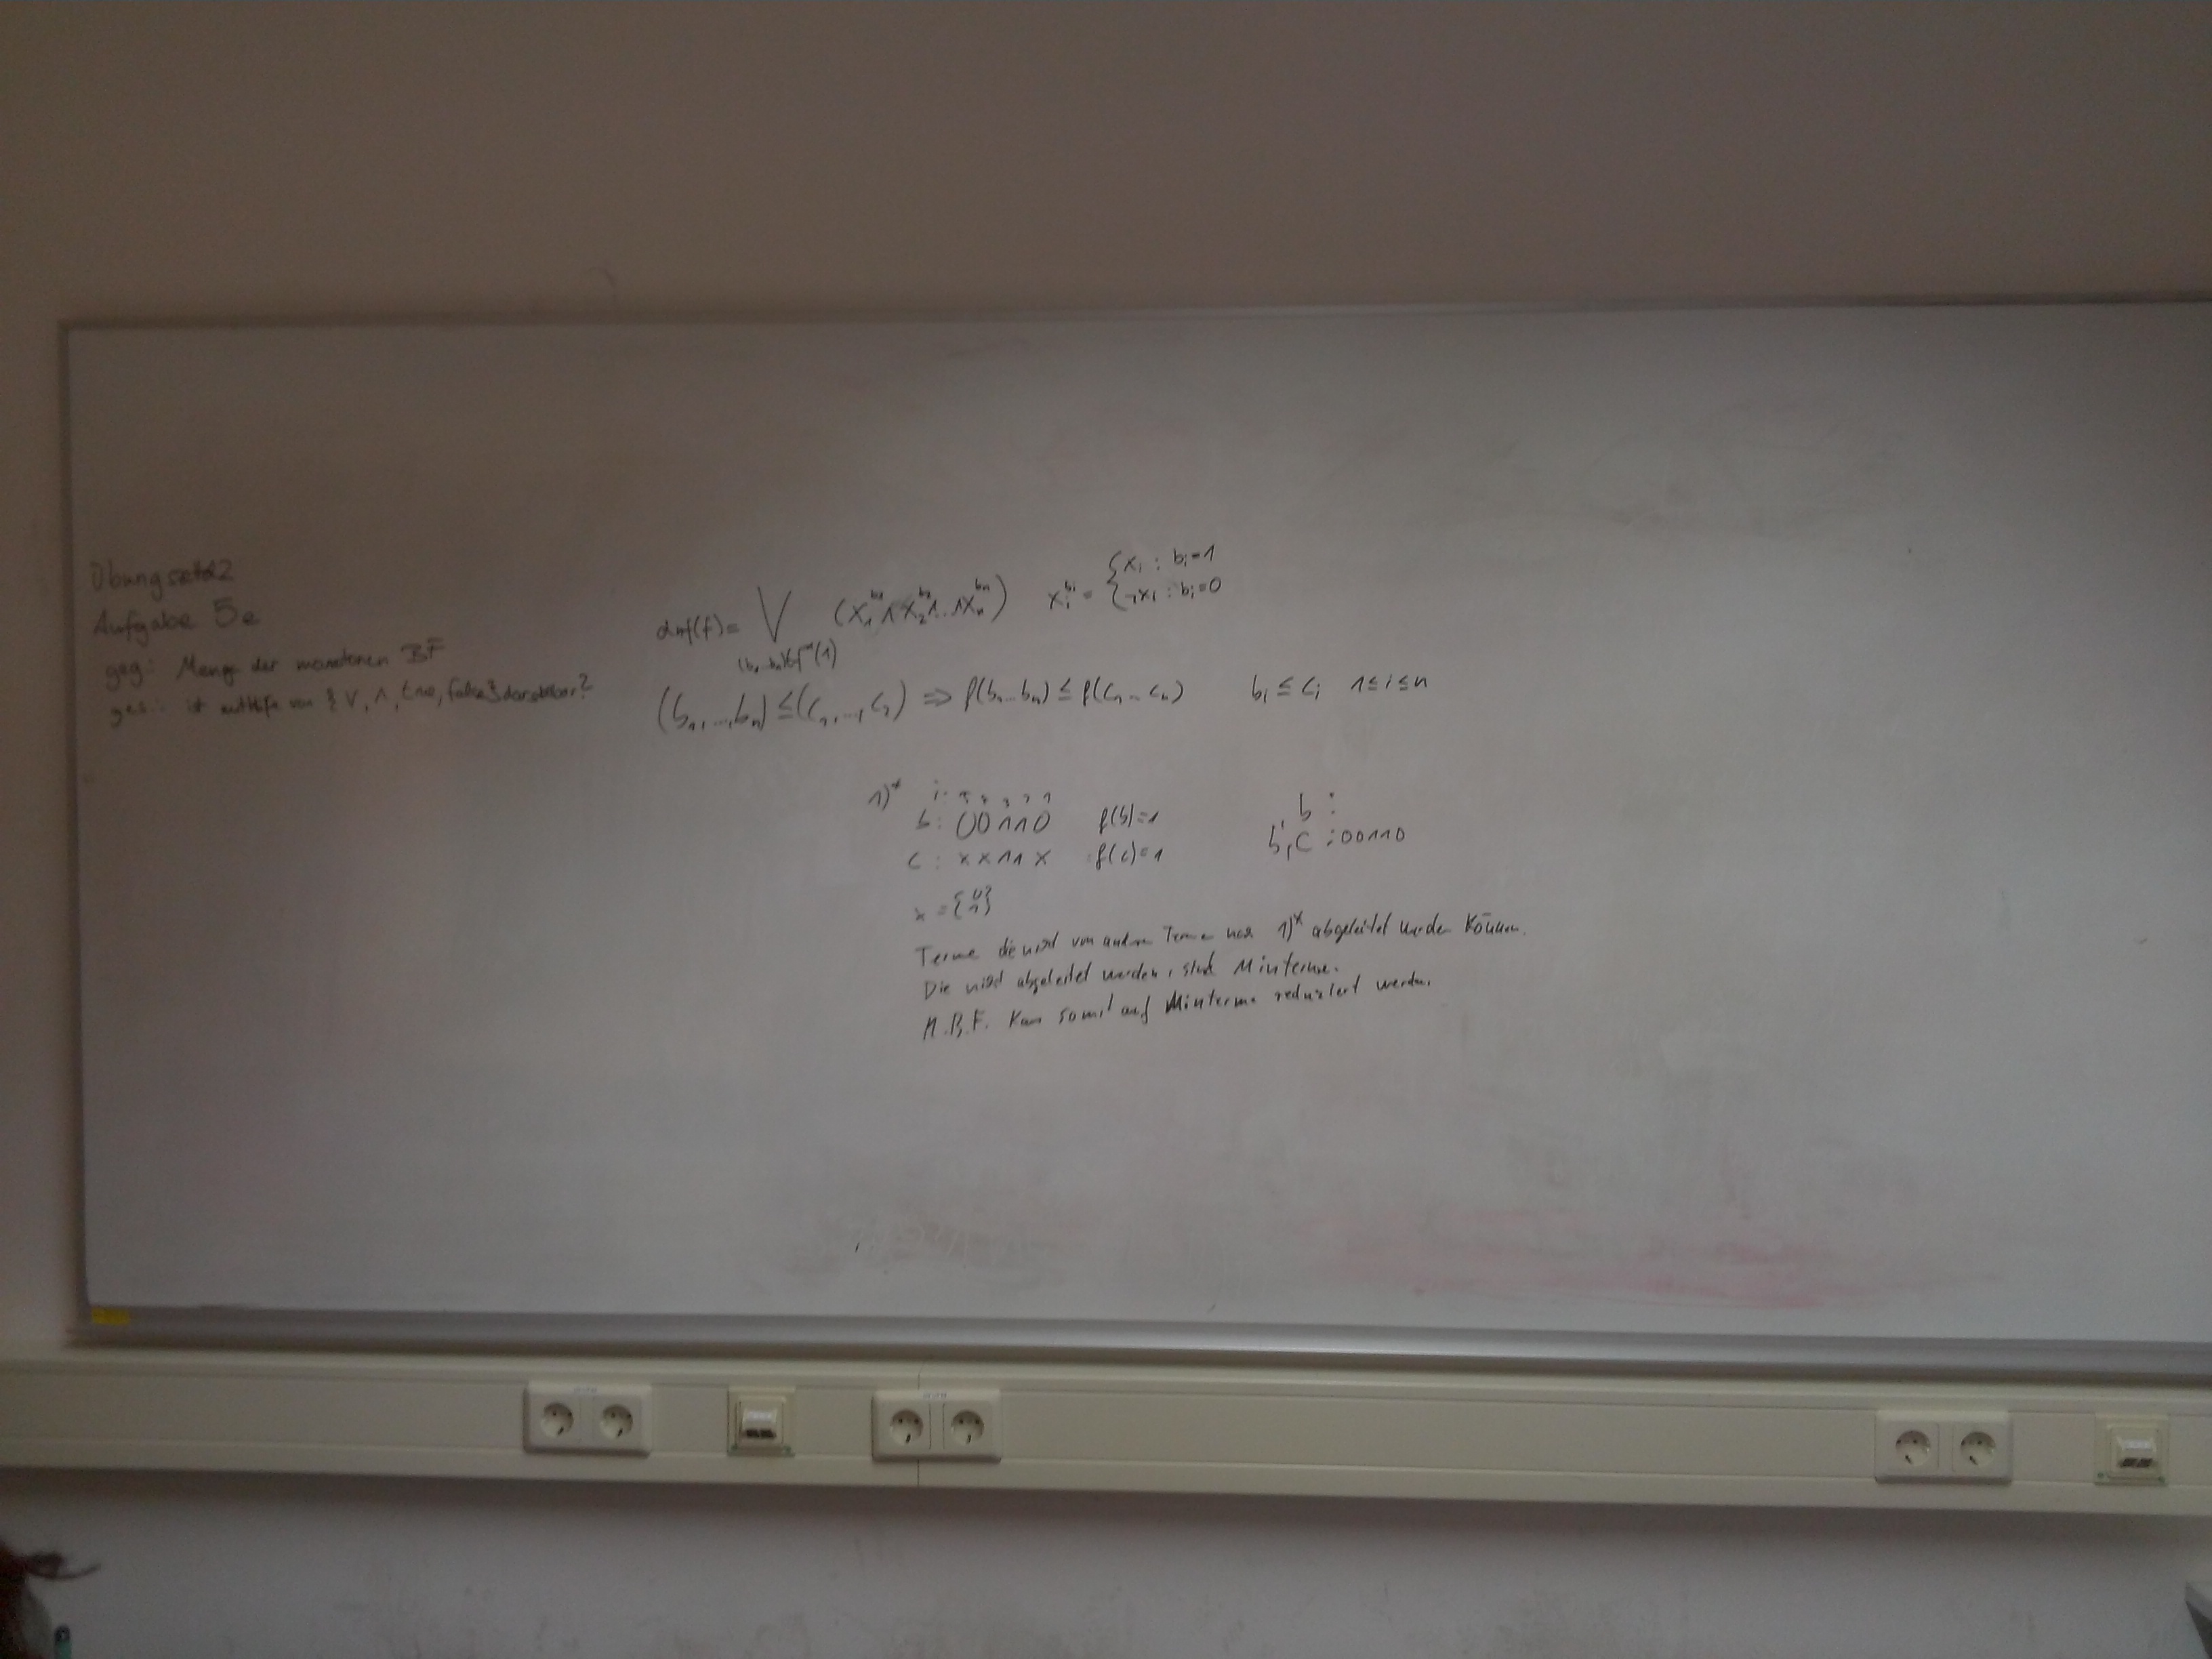 Übungsetal2
Aufgabe 5e
geg: Menge der monotonen BF
ges: ist mithilfe von {∨, ∧, true, false} darstellbar?
dnf(f) = ⋁ (x₁^b₁ ∧ x₂^b₂ ∧ ... ∧ xₙ^bₙ) xᵢ^bᵢ = { xᵢ : bᵢ=1
¬xᵢ : bᵢ=0
(b₁...bₙ)∈f⁻¹(1)
(b₁, ..., bₙ) ≤ (c₁, ..., c₂) ⇒ f(b₁...bₙ) ≤ f(c₁...cₙ) bᵢ ≤ cᵢ 1≤i≤n
1)* i: 5 4 3 2 1
b: 00110 f(b)=1 b :
c : xx11x f(c)=1 b', c : 00110
x = {0 1}
Terme die nicht von andren Terme nach 1)* abgeleitet werden können.
Die nicht abgeleitet werden, sind Minterme.
M.B.F. Kann somit auf Minterme reduziert werden.